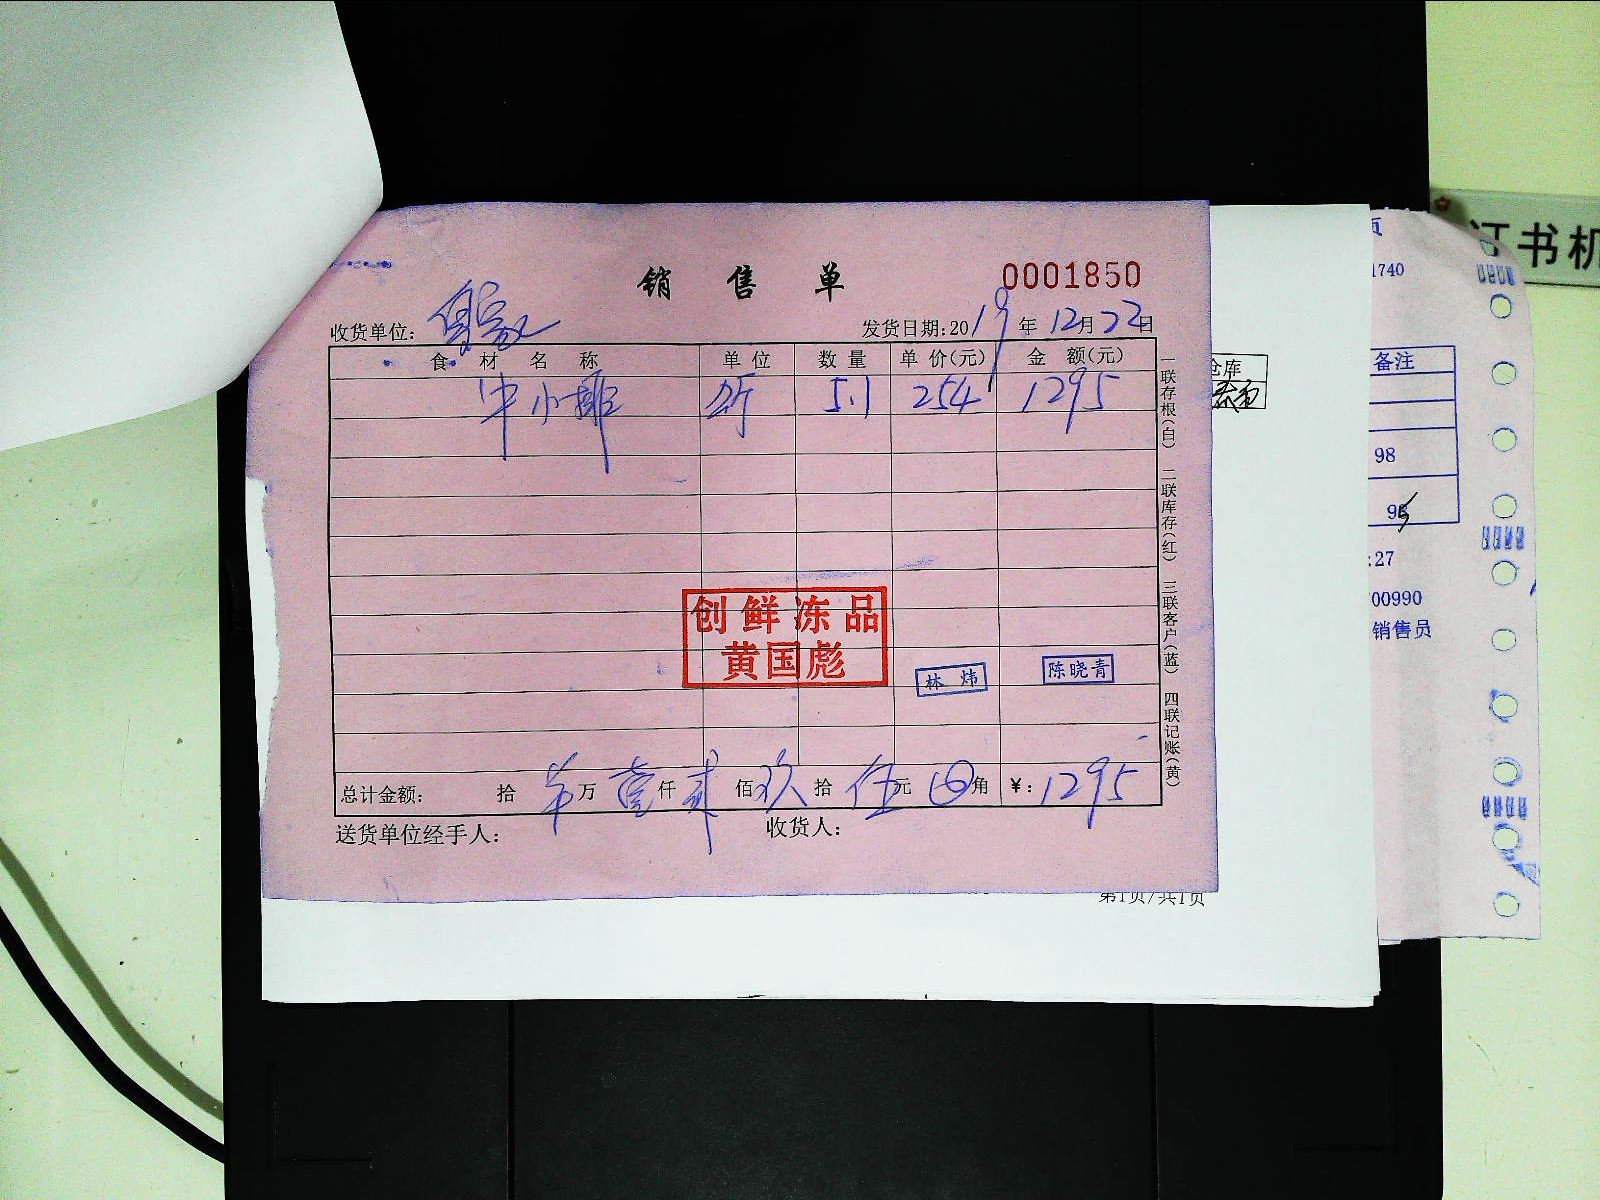 销售单
0001850
收货单位:
发货日期:2019年12月22日
食材名称 单位 数量 单价(元) 金额(元)
牛小排 斤 5.1 254 1295
创鲜冻品
黄国彪
林炜
陈晓青
总计金额: 拾 万 壹仟 贰佰 玖拾 伍元 角 ¥:1295
送货单位经手人: 收货人:
一联存根(白) 二联库存(红) 三联客户(蓝) 四联记账(黄)
仓库
第1页/共1页
页
1740
备注
98
:27
00990
销售员
证书机